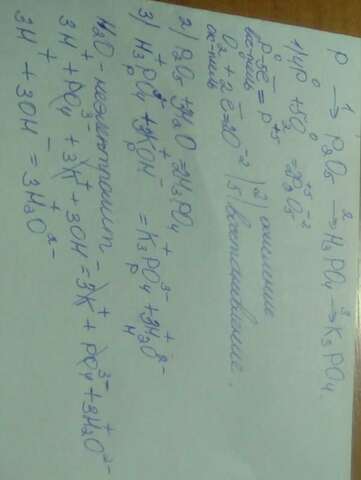 P → P2O5 → H3PO4 → K3PO4
1 2 3
1) 4P⁰ + 5O2⁰ = 2P2⁺⁵O5⁻²
P⁰ - 5e̅ = P⁺⁵ | 2 | окисление
O2 + 2e̅ = 2O⁻² | 5 | восстановление.
2) P2O5 + 3H2O = 2H3PO4
3) H3⁺PO4 + 3K⁺OH⁻ = K3⁺PO4³⁻ + 3H2⁺O²⁻
р р н
H2O - неэлектролит
3H⁺ + PO4³⁻ + 3K⁺ + 3OH⁻ = 3K⁺ + PO4³⁻ + 3H2⁺O²⁻
3H⁺ + 3OH⁻ = 3H2⁺O²⁻